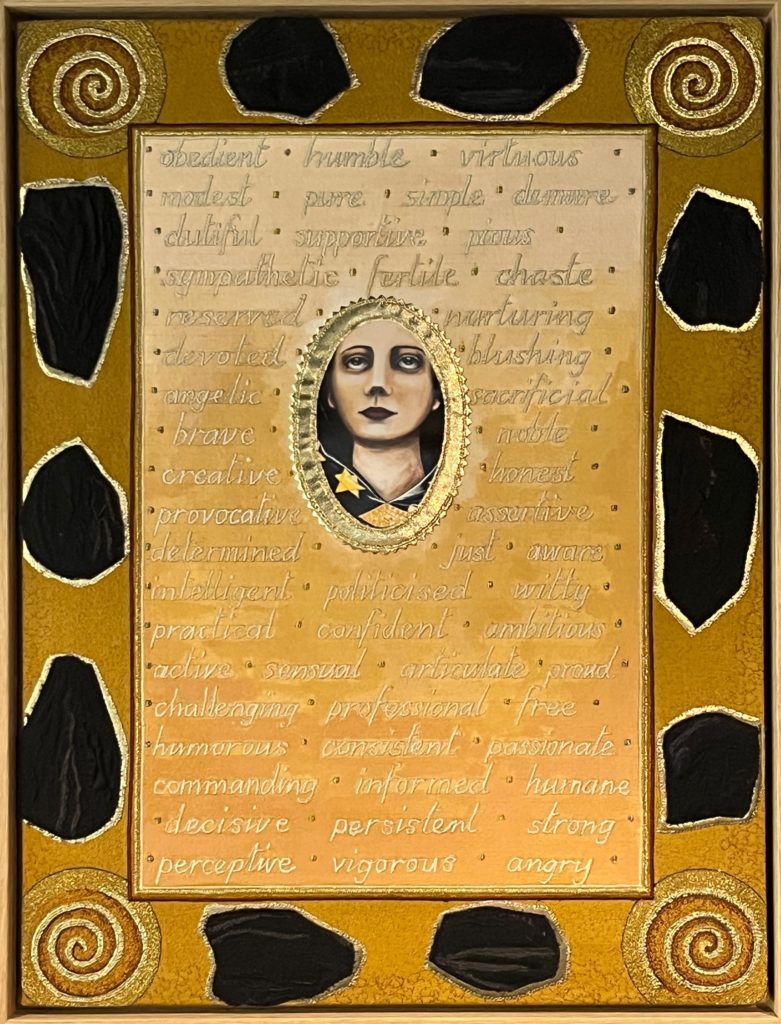 obedient • humble • virtuous
• modest • pure • simple • demure •
• dutiful • supportive • pious
• sympathetic • fertile • chaste •
• reserved • nurturing
• devoted • blushing
• angelic • sacrificial •
• brave • noble •
creative • honest
• provocative • assertive
• determined • just • aware
• intelligent • politicised • witty •
practical • confident • ambitious
active • sensual • articulate • proud
challenging • professional • free •
• humorous • consistent • passionate •
commanding • informed • humane
• decisive • persistent • strong
• perceptive • vigorous • angry •